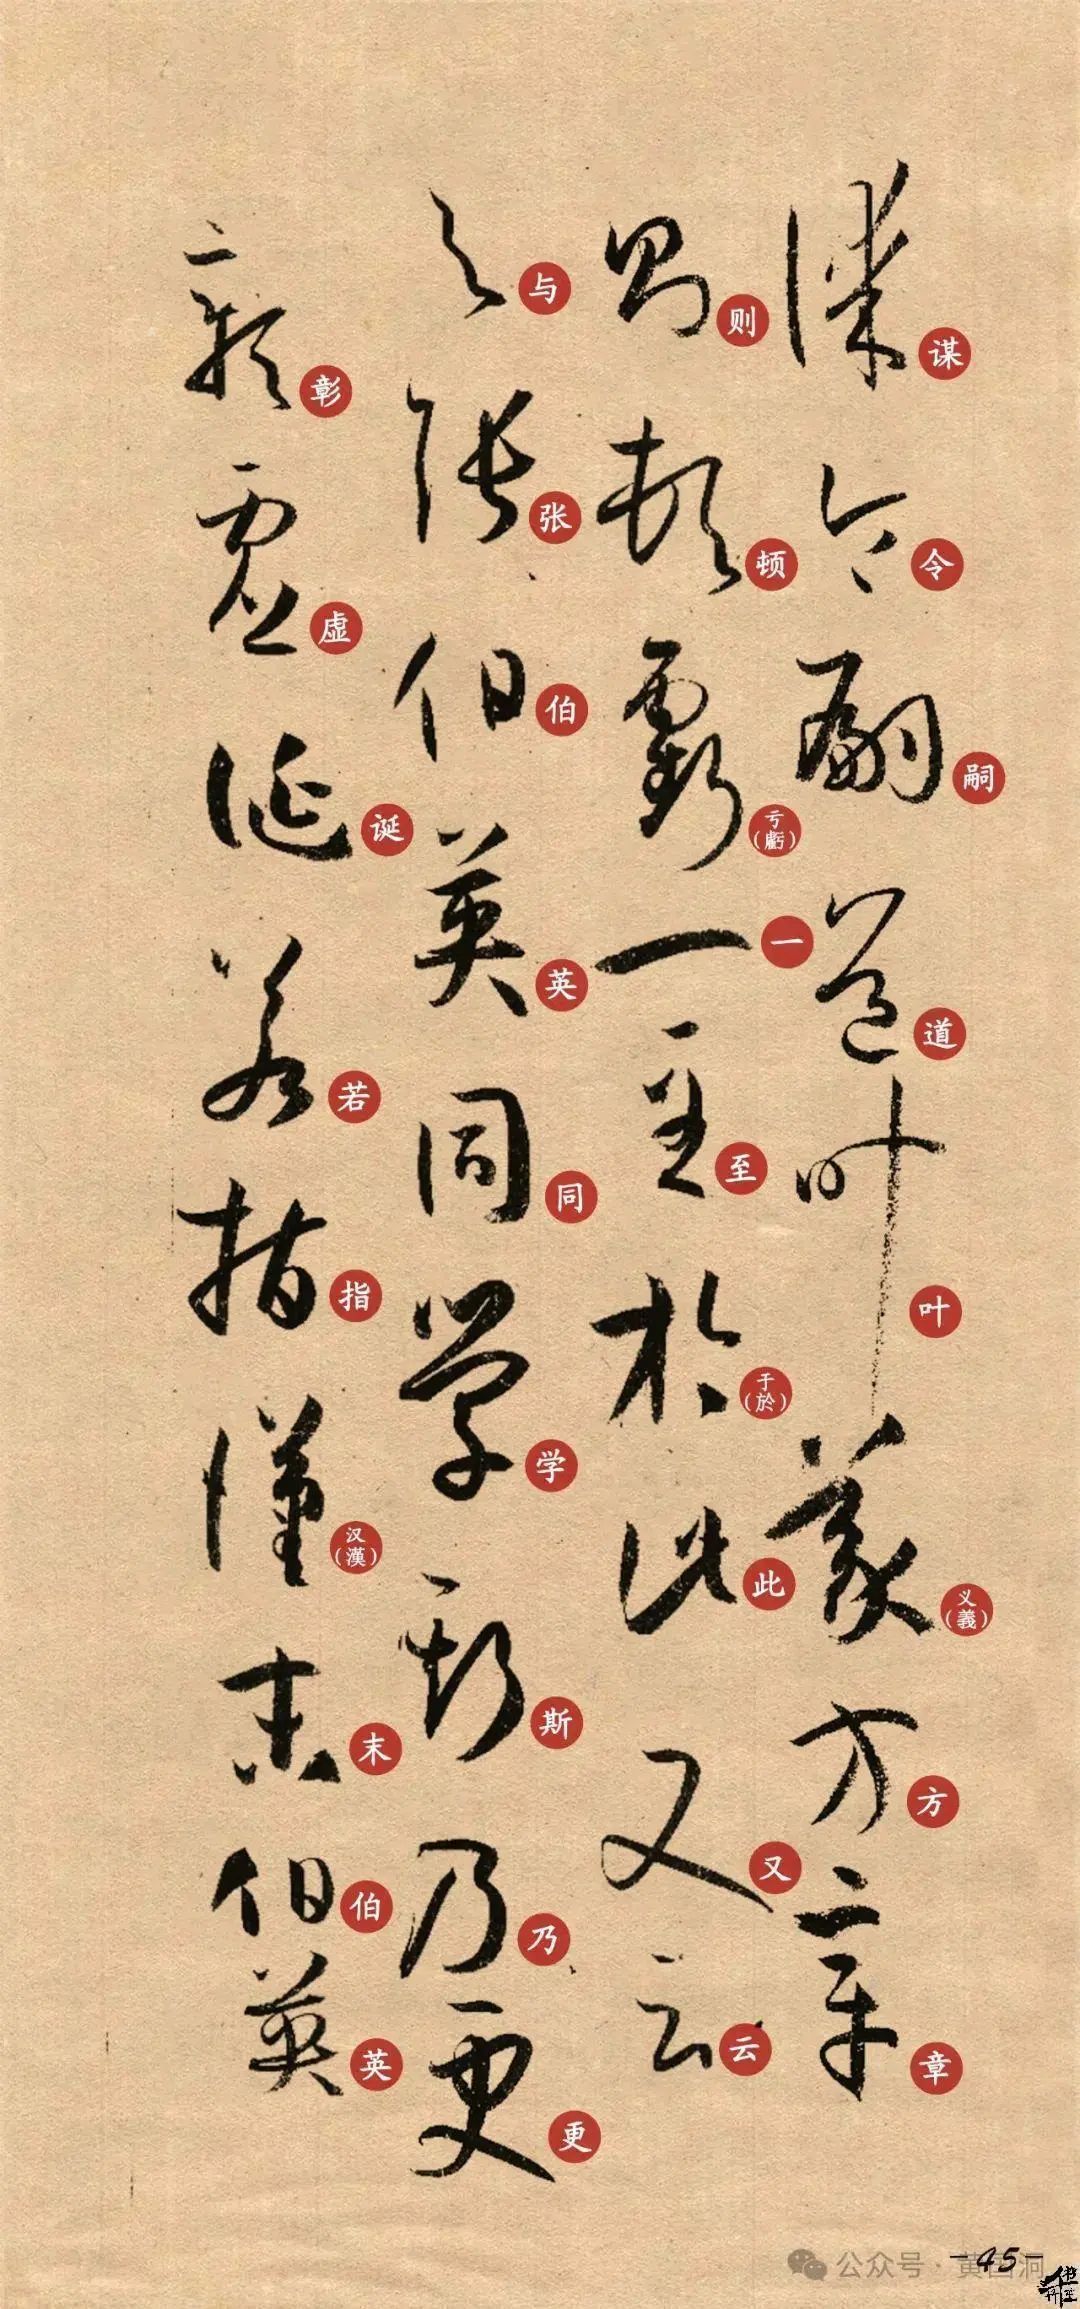 谋令嗣道叶义(義)方章
则顿亏(虧)一至于(於)此又云
与张伯英同学斯乃更
彰虚诞若指汉(漢)末伯英
-45-
公众号